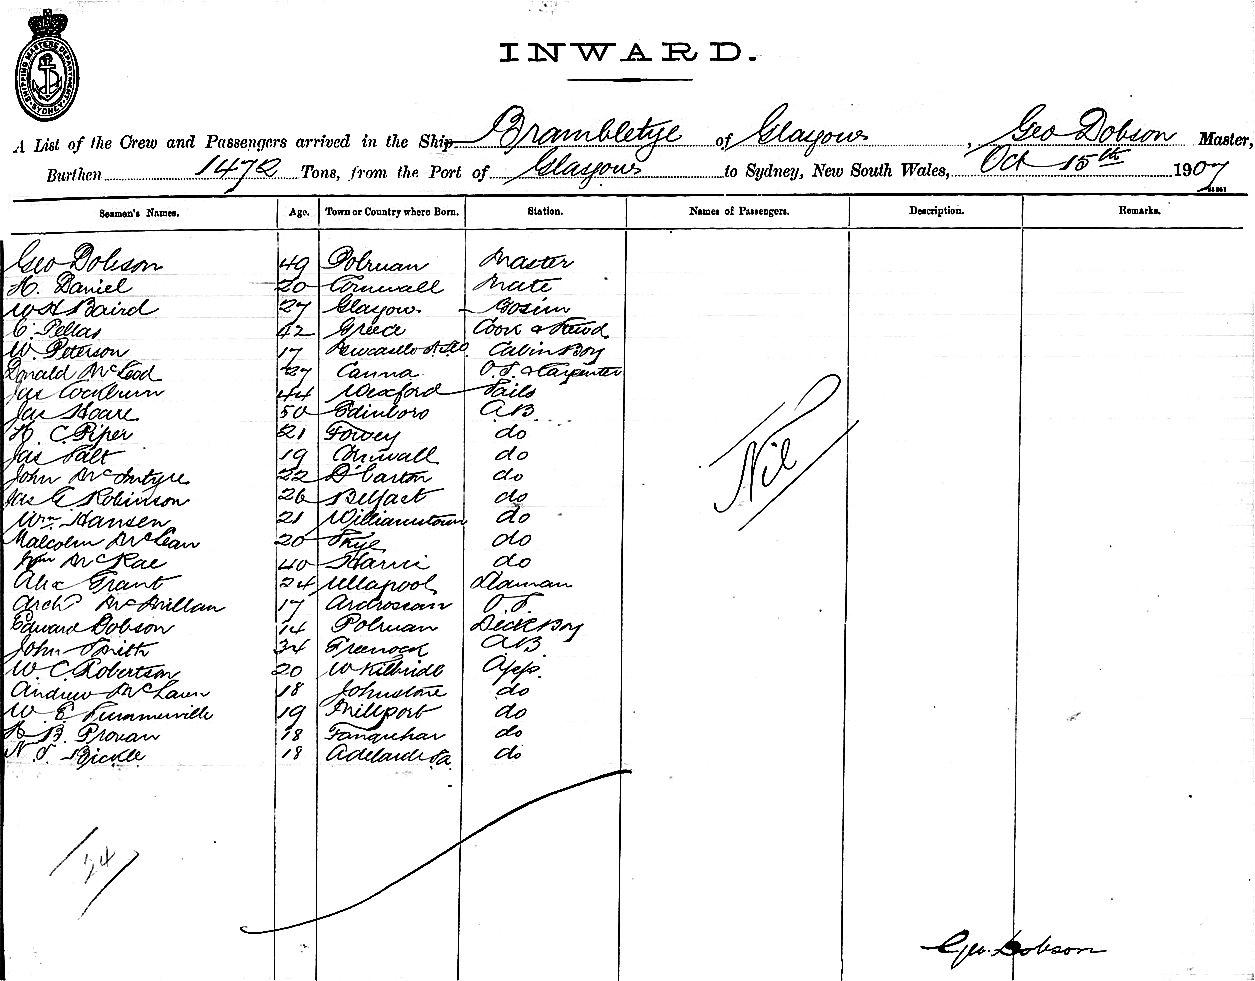 SHIPPING MASTERS DEPARTMENT SYDNEY
INWARD.
A List of the Crew and Passengers arrived in the Ship Brambletye of Glasgow, Geo Dobson Master,
Burthen 1472 Tons, from the Port of Glasgow to Sydney, New South Wales, Oct 15th 1907
Seamen's Names. Age. Town or Country where Born. Station. Names of Passengers. Description. Remarks.
Geo Dobson 49 Polruan Master
H. Daniel 20 Cornwall Mate
W H Baird 27 Glasgow Bosun
C. Pellas 42 Greece Cook & Stewd
W. Peterson 17 Newcastle Cabin Boy
Donald McLeod 37 Canna O.S. & Carpenter
Jas Cockburn 44 Wexford Sails
Jas Hoare 50 Edinboro AB
H. C. Piper 21 Fowey do
Jas Salt 19 Cornwall do
John McIntyre 22 D'barton do
Jas G Robinson 26 Belfast do
Wm Hansen 21 Williamstown do
Malcolm McLean 20 Skye do
Wm McRae 40 Harris do
Alex Grant 24 Ullapool Seaman
Archd McMillan 17 Ardrossan O.S.
Edward Dobson 14 Polruan Deck Boy
John Smith 34 Greenock AB
W. C. Robertson 20 W Kilbride App.
Andrew McLaren 18 Johnstone do
W. E. Summerville 19 Millport do
B. Provan 18 Farquhar do
N. S. Bickle 18 Adelaide Sa. do
Nil
24
Geo. Dobson